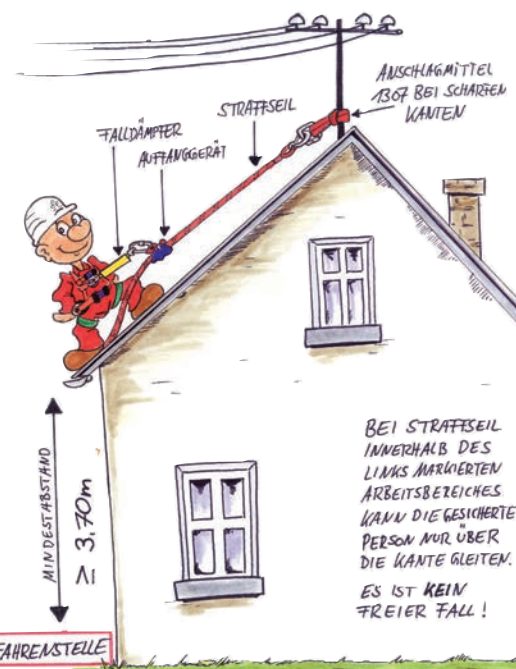 ANSCHLAGMITTEL
1307 BEI SCHARFEN
KANTEN
STRAFFSEIL
FALLDÄMPFER
AUFFANGGERÄT
MINDESTABSTAND
≥ 3,70m
BEI STRAFFSEIL
INNERHALB DES
LINKS MARKIERTEN
ARBEITSBEREICHES
KANN DIE GESICHERTE
PERSON NUR ÜBER
DIE KANTE GLEITEN.
ES IST KEIN
FREIER FALL!
FAHRENSTELLE